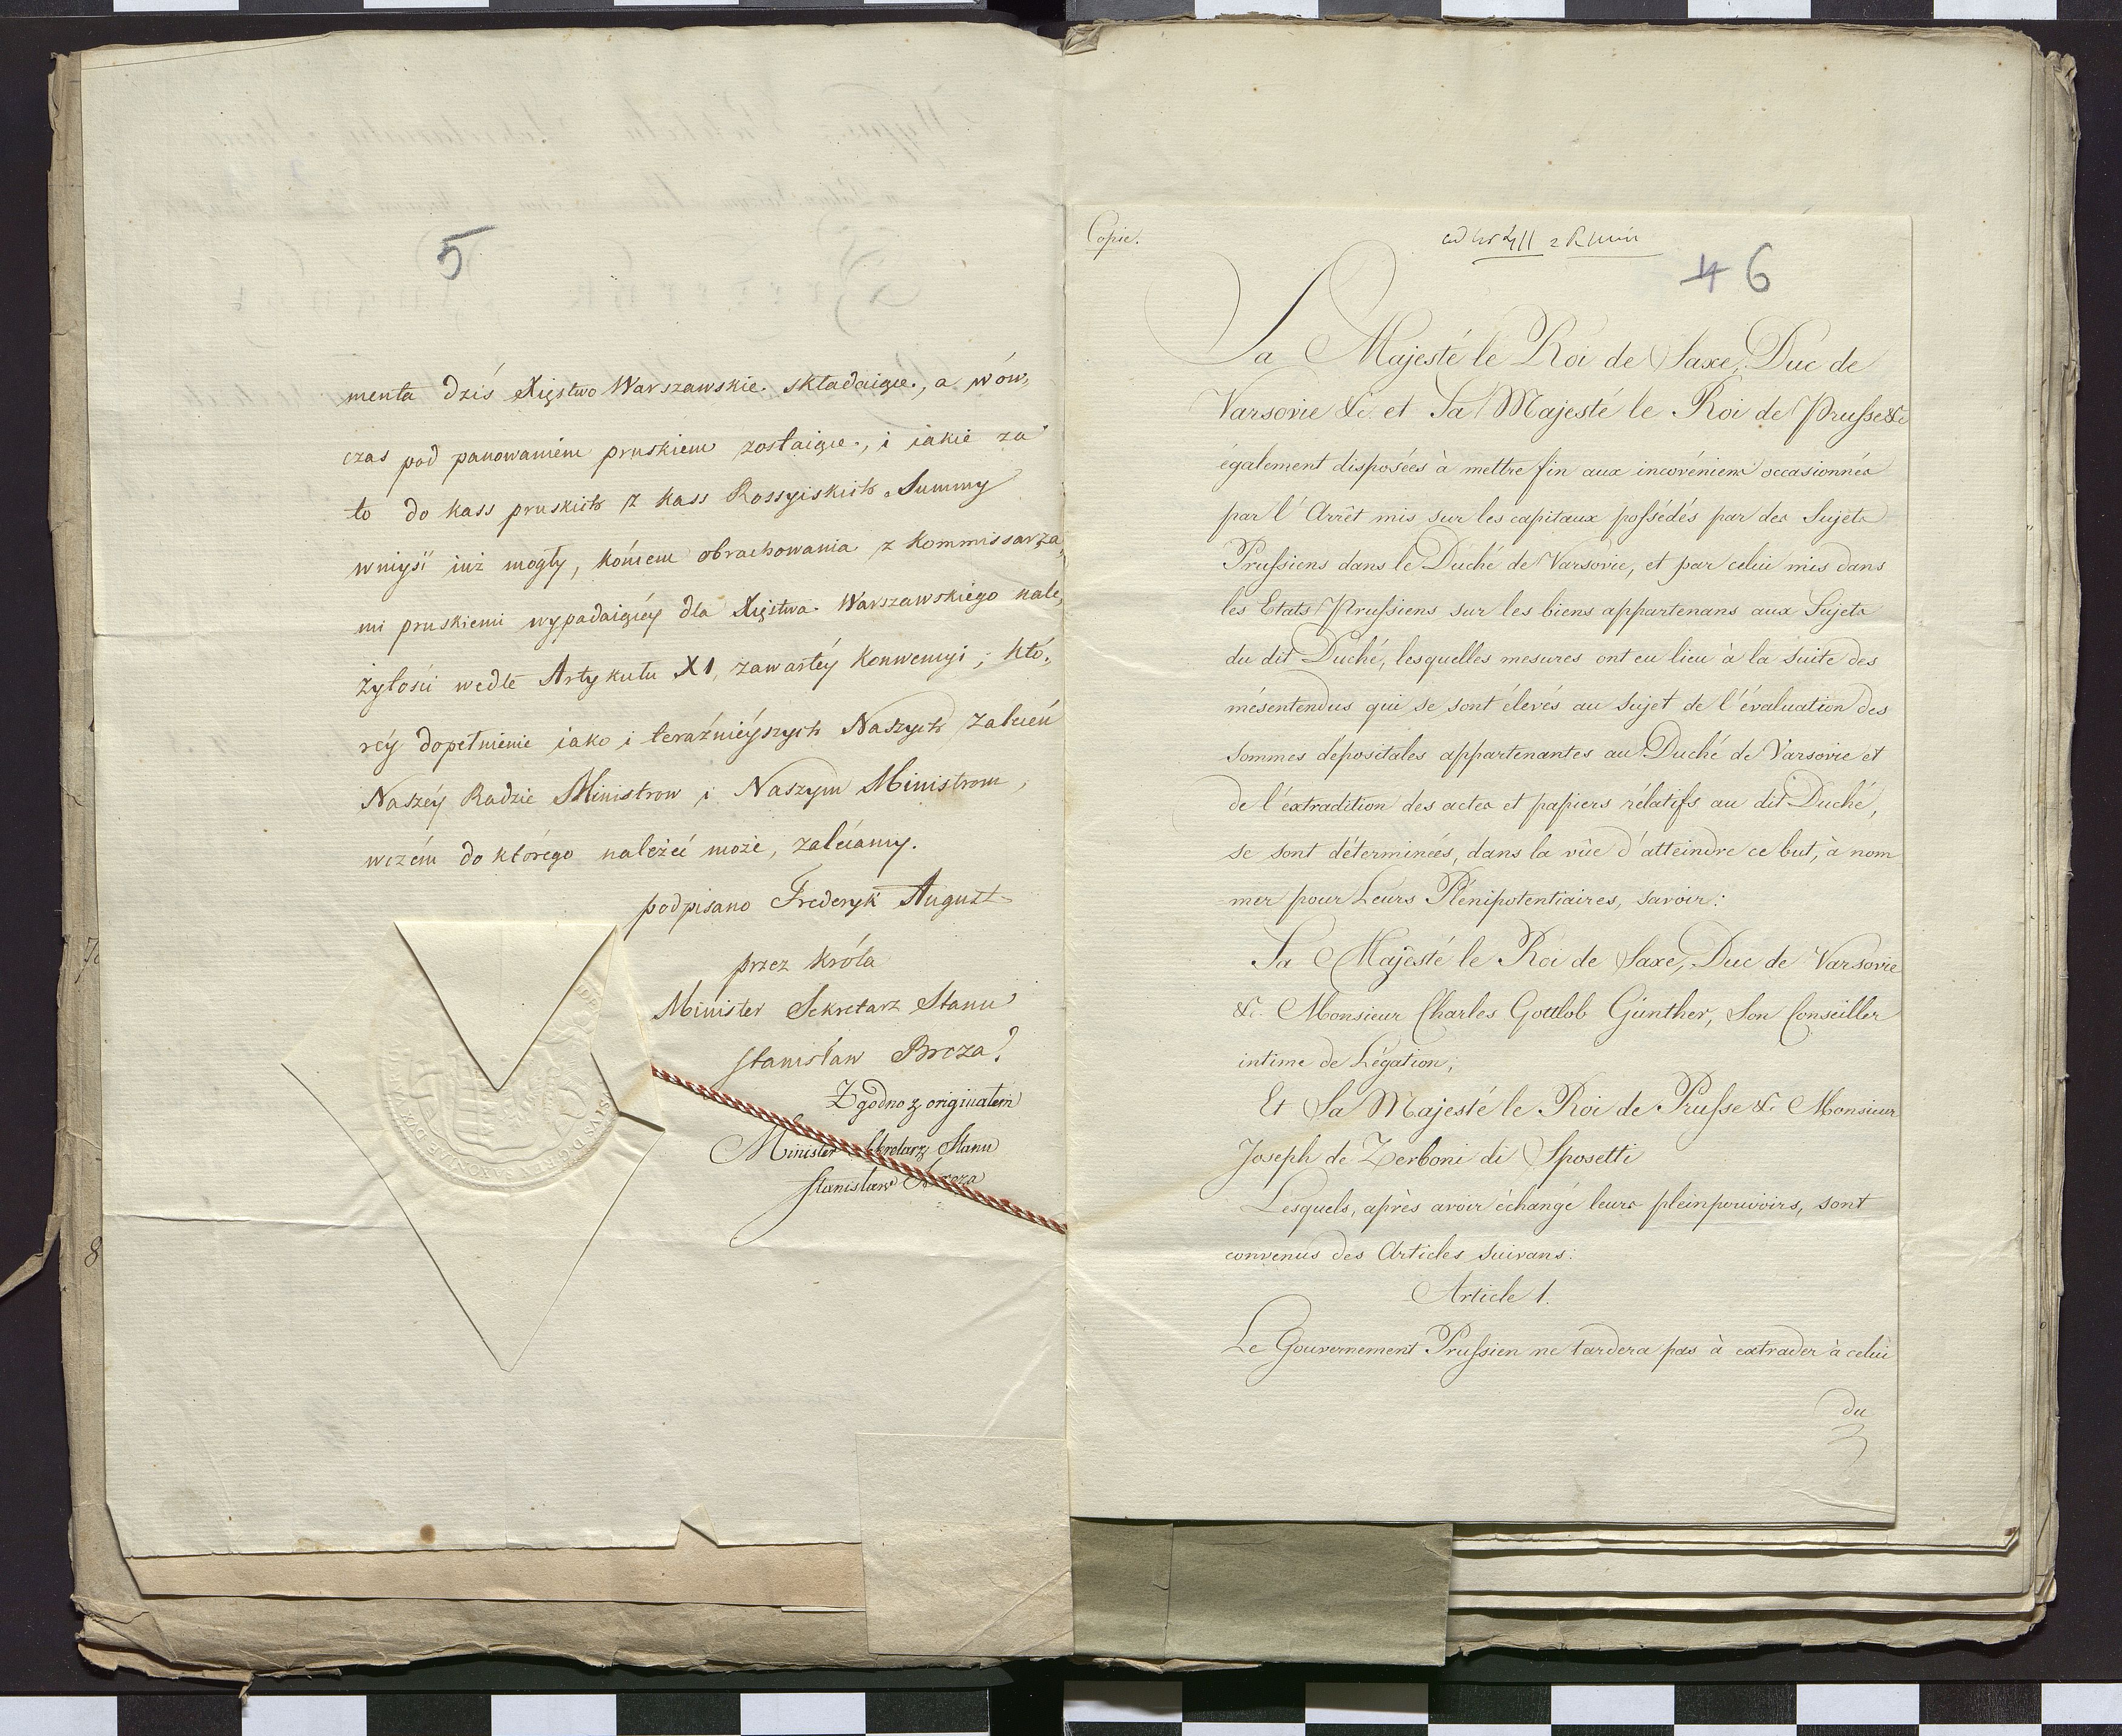 5
menta dziś Xięstwo Warszawskie składaiące, a wów,
czas pod panowaniem pruskiem zostaiące, i iakie za
to do kass pruskich z kass Rossyiskich Summy
wniyść iuż mogły, końcem obrachowania z kommissarza,
mi pruskiemi wypadaiącéy dla Xięstwa Warszawskiego nale,
żytości wedle Artykułu XI, zawartéy Konwencyi; któ,
réy dopełnienie iako i teraźnieyszych Naszych zaleceń
Naszéy Radzie Ministrow i Naszym Ministrom,
wczém do którego należeć może, zalecamy.
podpisano Frederyk August
przez króla
Minister Sekretarz Stanu
Stanisław Breza
Zgodno z originałem
Minister Sekretarz Stanu
Stanisław Breza
7
8
Copie.
4 6
Sa Majesté le Roi de Saxe, Duc de
Varsovie &c. et Sa Majesté le Roi de Prusse &c
également disposées à mettre fin aux incovéniens occasionnés
par l'Arrêt mis sur les capitaux possédés par des Sujets
Prussiens dans le Duché de Varsovie, et par celui mis dans
les Etats Prussiens sur les biens appartenans aux Sujets
du dit Duché, lesquelles mesures ont eu lieu à la suite des
mésentendus qui se sont élevés au sujet de l'évaluation des
sommes dépositales appartenantes au Duché de Varsovie et
de l'extradition des actes et papiers rélatifs au dit Duché,
se sont déterminées, dans la vûe d'atteindre ce but, à nom
=mer pour Leurs Plénipotentiaires, savoir:
Sa Majesté le Roi de Saxe, Duc de Varsovie
&c. Monsieur Charles Gottlob Günther, Son Conseiller
intime de Légation;
Et Sa Majesté le Roi de Prusse &c Monsieur
Joseph de Zerboni di Sposetti
Lesquels, après avoir échangé leurs pleinpouvoirs, sont
convenus des Articles suivans:
Article 1.
Le Gouvernement Prussien ne tardera pas à extrader à celui
du